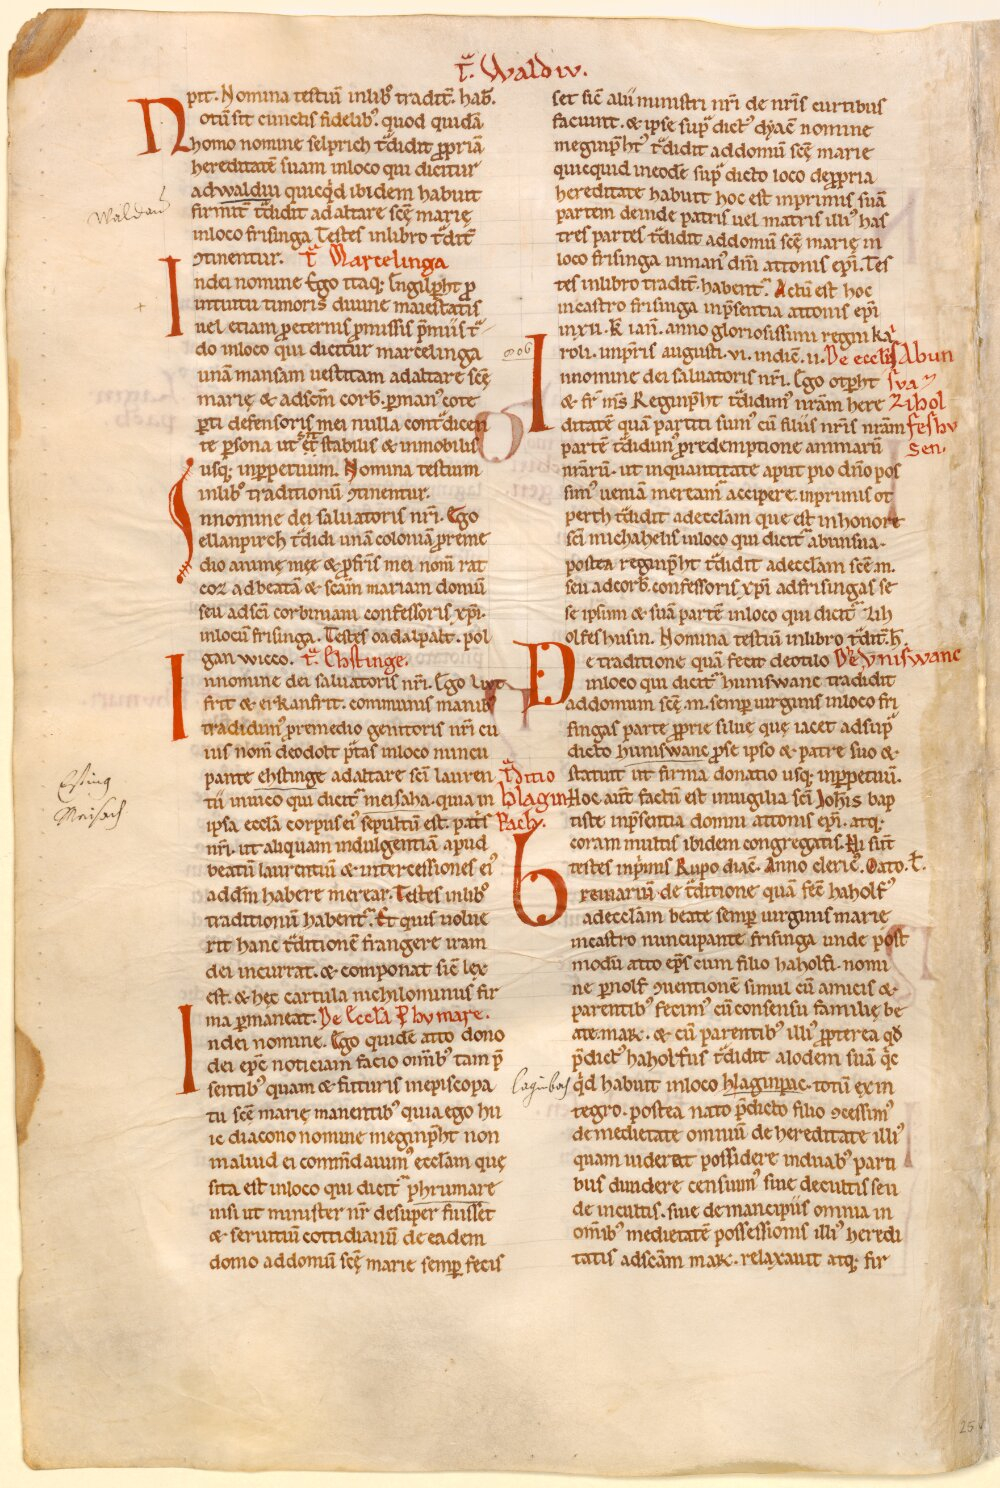 t͛. Waldiv.
pit. Nomina testiū inlib᷒ tradit̄. hab̄.
Notū sit cunctis fidelib᷒. quod quidā
homo nomine selprich t͛didit ꝓpriā
hereditatē suam inloco qui dicitur
adwaldiu quicq̇d ibidem habuit
firmit͛ t͛didit adaltare scę marię
inloco frisinga Testes inlibro t͛dit̄
ꝯtinentur. t͛ Marcelinga
Indei nomine Ego itaq; Engilꝑht ꝓ
intuitu timoris diuine maiestatis
uel etiam ꝓeternis ꝓmissis p̄miis t͛
do inloco qui dicitur marcelinga
unā mansam uestitam adaltare scę
marię & adscm̄ corb. ꝑman᷒ eote
ꝑti defensoris mei nulla cont͛dicen
te ꝑsona ut et̄ stabilis & inmobilis
usq; inꝑpetuum. Nomina testium
inlib᷒ traditionū ꝯtinentur.
Innomine dei saluatoris nr̄i. Ego
ellanpirch t͛didi unā coloniā ꝓreme
dio animę meę & ꝓfr̄is mei nom̄ rat
coz adbeatā & scam̄ mariam domū
seu adsc̄i corbiniani confessoris xp̄i.
inlocū frisinga. Testes oadalpalt. pol
gan wicco. t͛. Ehstinge.
Innomine dei saluatoris nr̄i. Ego Liut
frit & erkanfrit. communis manib᷒
tradidim᷒ ꝓremedio genitoris nr̄i cu
ius nom̄ deodolt p̄tas inloco nuncu
pante ehstinge adaltare sc̄i lauren
tii inuico qui dicit͛ meisaha. quia in
ipsa eccl̄a corpus ei᷒ sepultū est. patis
nr̄i. ut aliquam indulgentiā apud
beatū laurentiū & intercessiones ei᷒
addm̄ habere merear. Testes inlib᷒
traditionū habent͛. Et quis uolue
rit hanc t͛ditionē frangere iram
dei incurrat. & componat sic̄ lex
est. & hęc cartula nichilominus fir
ma ꝑmaneat. De Eccl̄a Phrvmare.
Indei nomine. Ego quidē atto dono
dei ep̄c noticiam facio omīb᷒ tam p̄
sentib᷒ quam & futuris inepiscopa
tu scę marię manentib᷒ quia ego hu
ic diacono nomine meginꝑht non
inaliud ei comm̄dauim᷒ eccl̄am quę
sita est inloco qui dicit͛ phrumare
nisi ut minister nr̄ desuper fuisset
& seruitiū cottidianū de eadem
domo addomū scę marie semꝑ fecis
set sic̄ alii ministri nr̄i de nr̄is curtibus
faciunt. & ipse sup͛ dict᷒ dyac̄ nomine
meginꝑht᷒ t͛didit addomū scę marie
quicquid ineodē sup͛ dicto loco deꝓpria
hereditate habuit hoc est inprimis suā
partem deinde patris uel matris illi᷒ has
tres partes t͛didit addomū scę marię in
loco frisinga inman᷒ dn̄i attonis ep̄i. Tes
tes inlibro tradit̄. habent͛. Actū est hoc
incastro frisinga inp̄sentia attonis ep̄i
inxii. K ian̄. anno gloriosissimi regni ka
roli. inp̄ris augusti. vi. indic̄. ii. De ecclis Abun
Innomine dei saluatoris nr̄i. Ego otꝑht sva
& fr̄ m̄s Reginꝑht t͛didim᷒ nr̄am here Ziholfeshv
ditatē quā partiti sum᷒ cū filiis nr̄is nr̄am sen.
partē t͛didim᷒ ꝓredemptione animarū
nr̄arū. ut inquantitate aput pio dn̄o pos
sim᷒ ueniā meream͛ accipere. inprimis ot
perth t͛didit adeccl̄am que est inhonore
sc̄i michahelis inloco qui dicit͛ abunsua.
postea reginꝑht t͛didit adeccl̄am scē.m.
seu adcorb. confessoris xp̄i adfrisingas se
se ipsum & suā partē inloco qui dicit͛ Zih
olfeshusin. Nomina testiū inlibro t͛dit̄.h̄.
De traditione quā fecit deotilo De Vniswanc
inloco qui dicit͛ huniswanc tradidit
addomum scę.m. semꝑ uirginis inloco fri
singas parte ꝓprie siluę que iacet adsup͛
dicto huniswanc ꝓse ipso & patre suo &
statuit ut firma donatio usq; inꝑpetuū.
t͛ditio hlaginpach.
Hoc aūt factū est inuigilia sc̄i Joh̄is bap
tiste inp̄sentia domni attonis ep̄i. atq.
coram multis ibidem congregatis. Hi sūt
testes inp̄mis Rupo diac̄. Anno cleric᷒. Oato. t̄.
Breuiariū de t͛ditione quā fec̄ haholf᷒
adeccl̄am beate semꝑ uirginis marie
incastro nuncupante frisinga unde post
modū atto ep̄s cum filio haholfi. nomi
ne ꝑnolf᷒ ꝯuentionē simul cū amicis &
parentib᷒ fecim᷒ cū consensu familie be
ate.mar. & cū parentib᷒ illi᷒ ꝓpterea qd̄
p̄dict᷒ haholfus t͛didit alodem suā q̄c
q̇d habuit inloco hlaginpac. totū ex in
tegro. postea nato p̄dicto filio ꝯcessim᷒
demedietate omniū dehereditate illi᷒
quam uiderat possidere induab᷒ parti
bus diuidere censuim᷒ siue decultis seu
de incultis. siue demancipiis omnia in
omīb᷒ medietatē possessionis illi᷒ heredi
tatis adscam̄ mar. relaxauit atq; fir
Waldau
Esting
Meisach
906
Laginbach
25